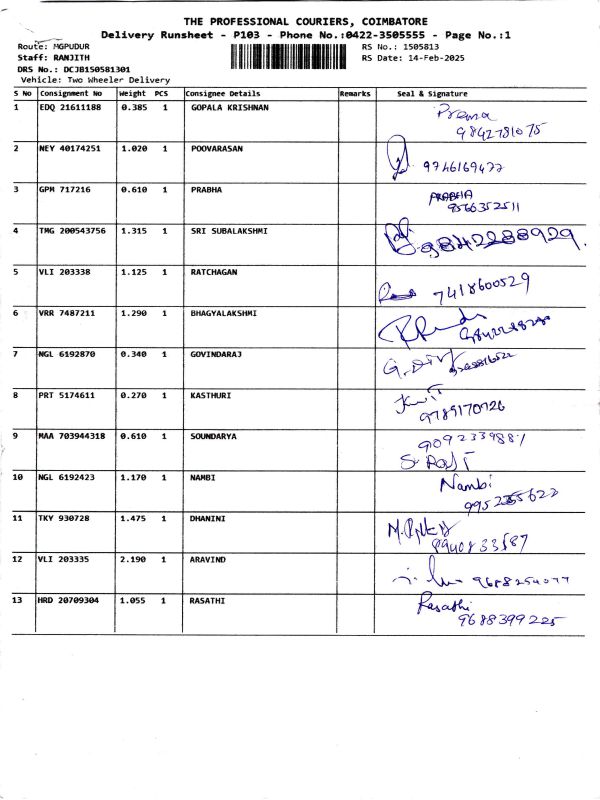 THE PROFESSIONAL COURIERS, COIMBATORE
Delivery Runsheet - P103 - Phone No.:0422-3505555 - Page No.:1
Route: MGPUDUR RS No.: 1505813
Staff: RANJITH RS Date: 14-Feb-2025
DRS No.: DCJB150581301
Vehicle: Two Wheeler Delivery
S No Consignment No Weight PCS Consignee Details Remarks Seal & Signature
1 EDQ 21611188 0.385 1 GOPALA KRISHNAN Prema
9842781075
2 NEY 40174251 1.020 1 POOVARASAN 9746169477
3 GPM 717216 0.610 1 PRABHA PRABHA
9566352511
4 TMG 200543756 1.315 1 SRI SUBALAKSHMI 9842288929
5 VLI 203338 1.125 1 RATCHAGAN 7418600529
6 VRR 7487211 1.290 1 BHAGYALAKSHMI
7 NGL 6192870 0.340 1 GOVINDARAJ
8 PRT 5174611 0.270 1 KASTHURI
9789170726
9 MAA 703944318 0.610 1 SOUNDARYA 9092339881
10 NGL 6192423 1.170 1 NAMBI Nambi
11 TKY 930728 1.475 1 DHANINI
8940833587
12 VLI 203335 2.190 1 ARAVIND 9688254077
13 HRD 20709304 1.055 1 RASATHI Rasathi
9688399225